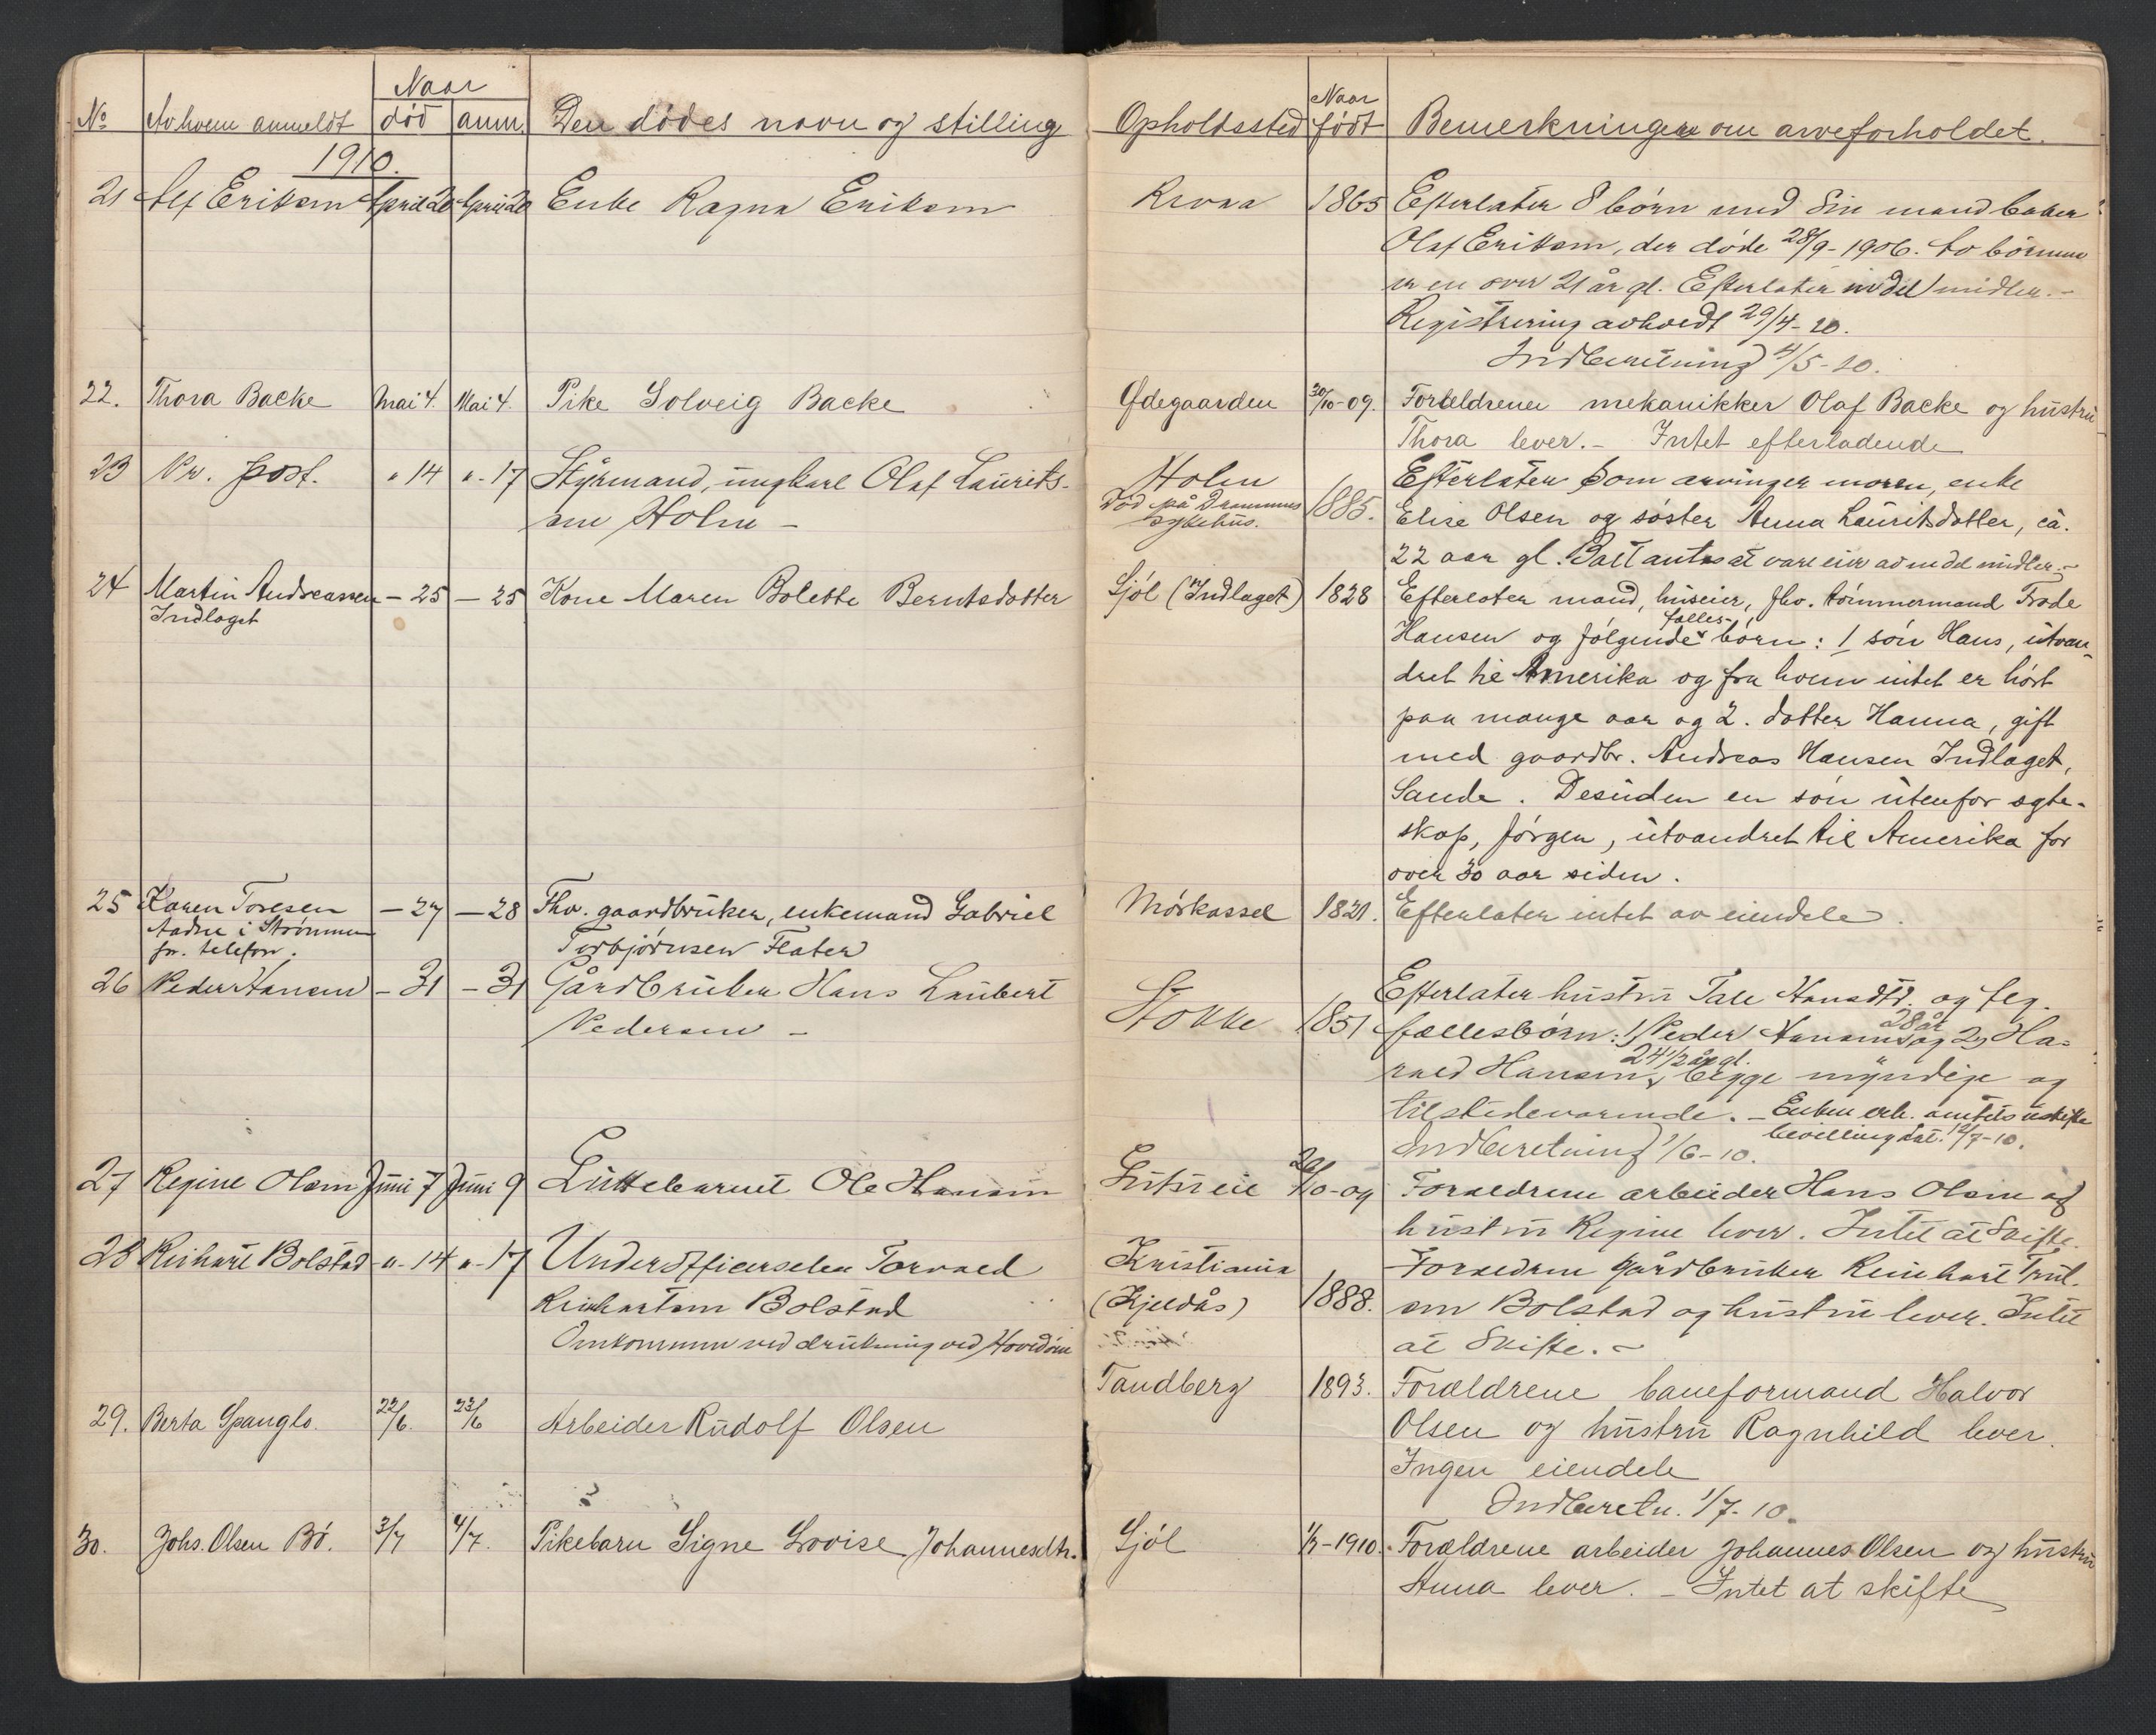 Naar
No Av hvem anmeldt død anm. Den dødes navn og stilling Opholdssted Naar født Bemerkninger om arveforholdet.
1910.
21 Alf Eriksen April 20 April 20 Enke Ragna Eriksen Revaa 1865 Efterlater 8 børn med sin mand baker
Olaf Eriksen, der døde 28/9-1906. Av børnene
er en over 21 år gl. Efterlater en del midler.-
Registrering avholdt 29/4-10.
Indberetning 4/5-10.
22. Thora Backe Mai 4. Mai 4. Pike Solveig Backe Ødegaarden 30/10-09. Forældrene mekanikker Olaf Backe og hustru
Thora lever.- Intet efterladende
23 Pr. post. " 14 "-17 Styrmand, ungkarl Olaf Laurits- Holm 1885. Efterlater som arvinger moren, enke
sen Holm - Død på Drammens sykehus. Elise Olsen og søster Anna Lauritsdatter, ca.
22 aar gl. Boet antas at være eier av en del midler.-
24 Martin Andreassen - 25 - 25 Kone Maren Bolette Berntsdatter Sjøl (Indlaget) 1828 Efterlater mand, huseier, fhv. tømmermand Frode
Indlaget
Hansen og følgende fælles- børn: 1 søn Hans, utvan-
dret til Amerika og fra hvem intet er hørt
paa mange aar og 2. datter Hanna, gift
med gaardbr. Andreas Hansen Indlaget,
Sande. Desuden en søn utenfor egte-
skap, Jørgen, utvandret til Amerika for
over 30 aar siden.
25 Karen Toresen - 27 - 28 Fhv. gaardbruker, enkemand Gabriel Mørkassel 1821. Efterlater intet av eiendele.
Aadne i Strømmen
pr. telefon. Torbjørnsen Flater
26 Peder Hansen - 31 - 31 Gårdbruker Hans Laubert Stokke 1851 Efterlater hustru Tale Hansdtr. og flg.
Pedersen - fællesbørn: 1) Peder Hansen 28 år og 2) Ha-
rald Hansen, 24 1/2 år gl. begge myndige og
tilstedeværende. - Enken erh. amtets uskifte
bevilling dat. 12/7-10.
Indberetning 1/6-10.
27 Regine Olsen Juni 7 Juni 9 Guttebarnet Ole Hansen 20/10-09 Forældrene arbeider Hans Olsen og
hustru Regine lever. Intet at skifte.
28 Reinhart Bolstad -"- 14 "-17 Underofficerselev Torvald Kristiania (Kjeldås) 1888. Forældrene gårdbruker Reinhart Trul-
Reinhartsen Bolstad sen Bolstad og hustru lever. Intet
Omkommen ved drukning ved Hovedøen at skifte. -
29. Berta Spanglo. 22/6. 23/6 Arbeider Rudolf Olsen Tandberg 1893. Forældrene baneformand Halvor
Olsen og hustru Ragnhild lever.
Ingen eiendele
Indberetn. 1/7-10.
30. Johs. Olsen Bø. 3/7 4/7. Pikebarn Signe Lovise Johannesdtr. Sjøl 1/3-1910. Forældrene arbeider Johannes Olsen og hustru
Anna lever. - Intet at skifte